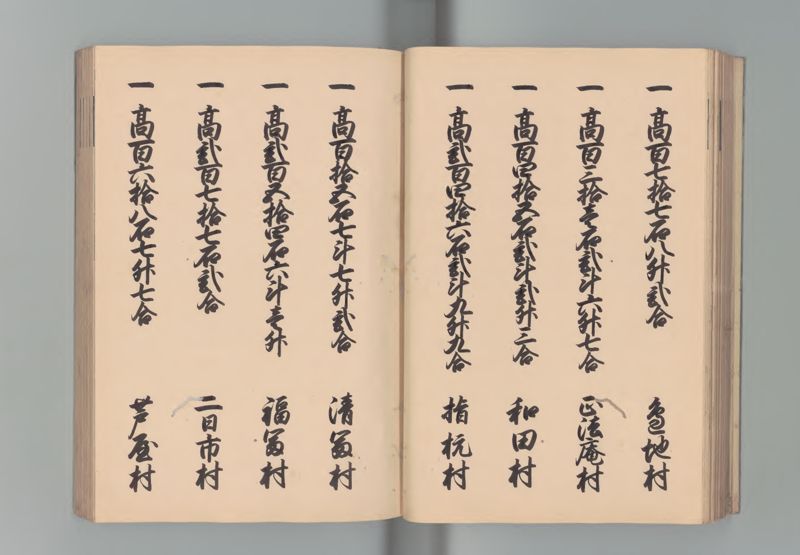 一 高百七拾七石八升弐合 色地村
一 高百三拾壱石弐斗六升七合 正法庵村
一 高百四拾五石弐斗弐升三合 和田村
一 高弐百四拾六石弐斗九升九合 指杭村
一 高百拾五石七斗七升弐合 清冨村
一 高弐百五拾四石六斗壱升 福冨村
一 高弐百七拾七石弐合 二日市村
一 高百六拾八石七升七合 芦屋村